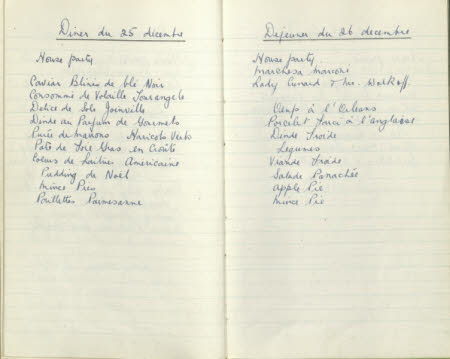 Diner du 25 decembre
House party
Caviar Blinis de blé Noir
Consommé de Volaille Tourangelle
Delice de Sole Joinville
Dinde au Parfum de Gourmets
Purée de marrons Haricots Verts
Paté de Foie Gras en Croûte
Coeurs de Laitues Américaine
Pudding de Noël
Mince Pies
Paillettes Parmesanne
Dejeuner du 26 decembre
House party
Marchesa Marconi
Lady Cunard & Mr.
à l'Orleans
Porcelet Farci à l'anglaise
Dinde Froide
Legumes
Viande Froide
Salade Panachée
Apple Pie
Mince Pie